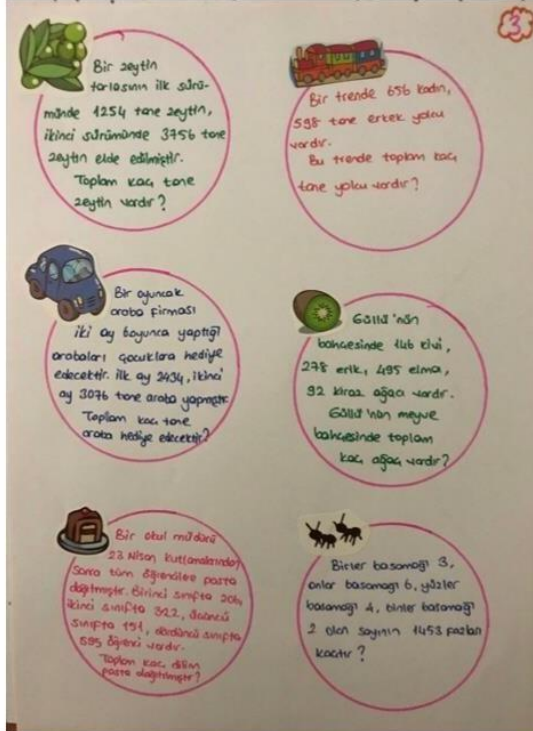 3
Bir zeytin
tarlasının ilk sürü-
münde 1254 tane zeytin,
ikinci sürümünde 3756 tane
zeytin elde edilmiştir.
Toplam kaç tane
zeytin vardır?
Bir trende 656 kadın,
598 tane erkek yolcu
vardır.
Bu trende toplam kaç
tane yolcu vardır?
Bir oyuncak
araba firması
iki ay boyunca yaptığı
arabaları çocuklara hediye
edecektir. İlk ay 2434, ikinci
ay 3076 tane araba yapmıştır.
Toplam kaç tane
araba hediye edecektir?
Güllü'nün
bahçesinde 146 kivi,
278 erik, 495 elma,
92 kiraz ağacı vardır.
Güllü'nün meyve
bahçesinde toplam
kaç ağaç vardır?
Bir okul müdürü
23 Nisan kutlamalarından
sonra tüm öğrencilere pasta
dağıtmıştır. Birinci sınıfta
ikinci sınıfta 322, üçüncü
sınıfta 151, dördüncü sınıfta
595 öğrenci vardır.
Toplam kaç dilim
pasta dağıtmıştır?
Birler basamağı 3,
onlar basamağı 6, yüzler
basamağı 4, binler basamağı
2 olan sayının 1453 fazlası
kaçtır?